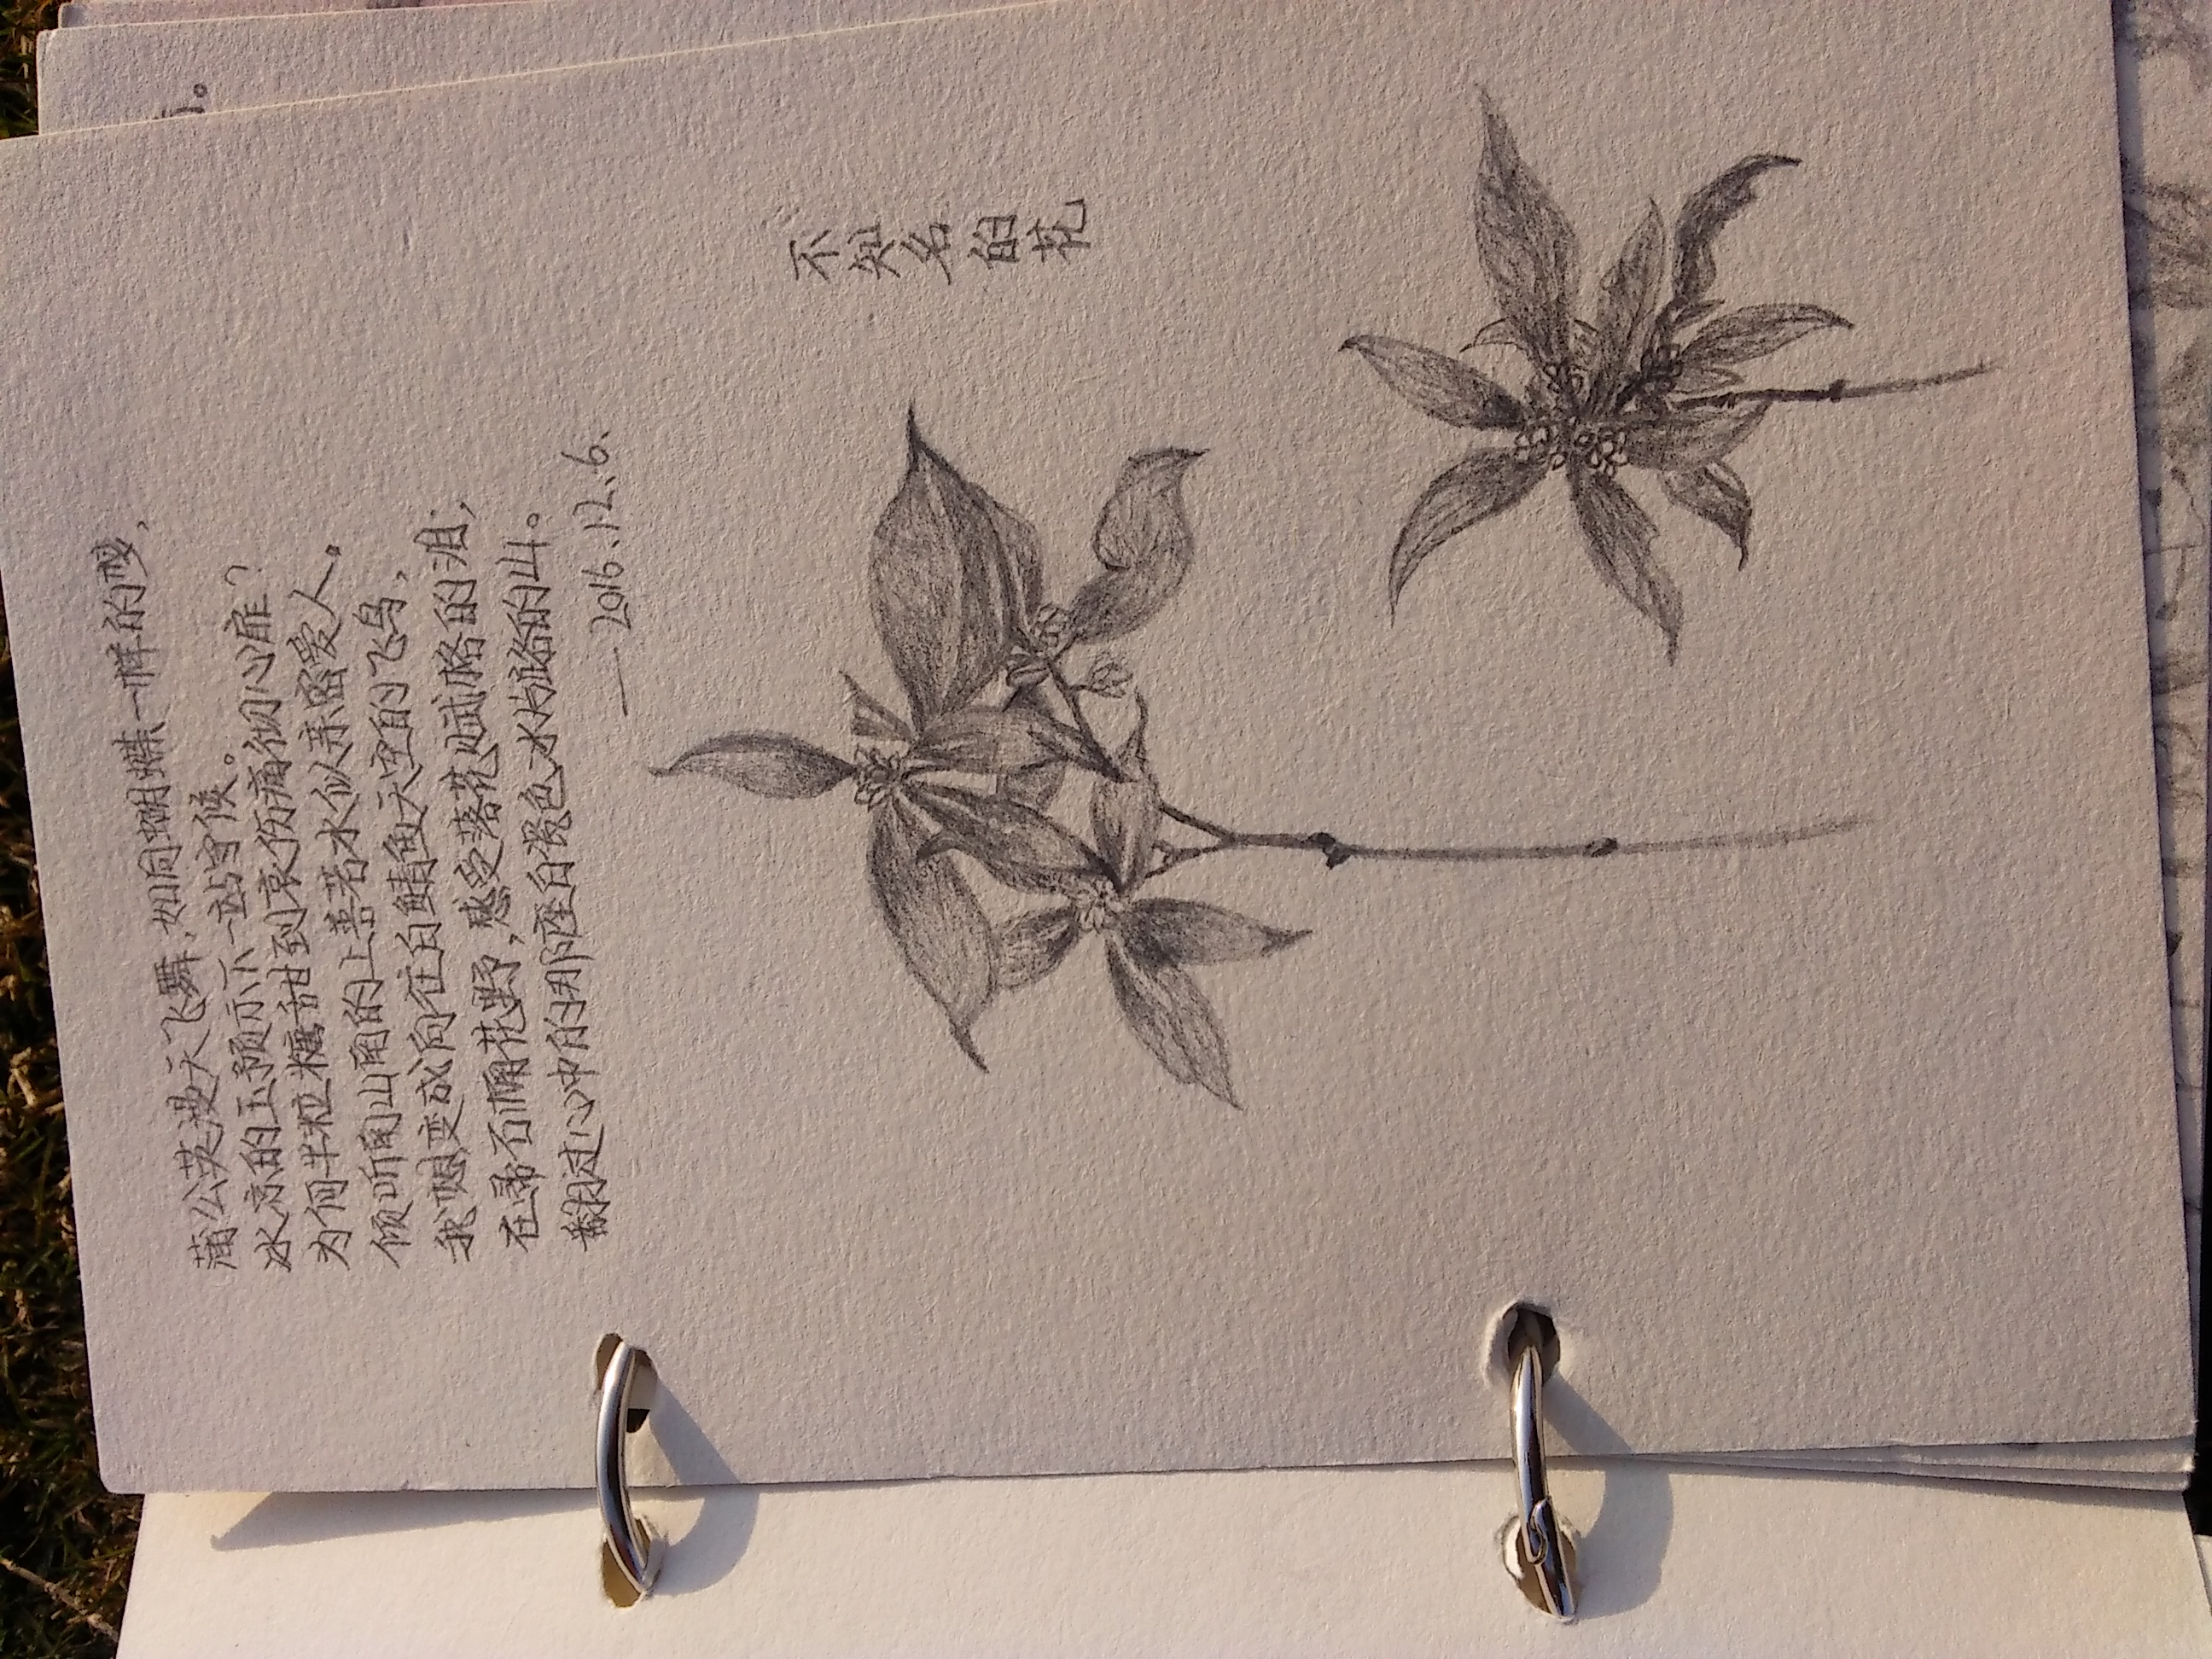 蒲公英漫天飞舞,如同蝴蝶一样的梦,
冰凉的玉预示下一站守候。
为何半粒糖甜到哀伤痛彻心扉?
倾听南山南的上善若水似亲密爱人。
我想变成向往白鲭鱼天空的飞鸟,
在帚石楠花野,感受落花赋格的泪;
翻过心中的那座白瓷色冰片路的山。
—2016、12、6、
不知名的花